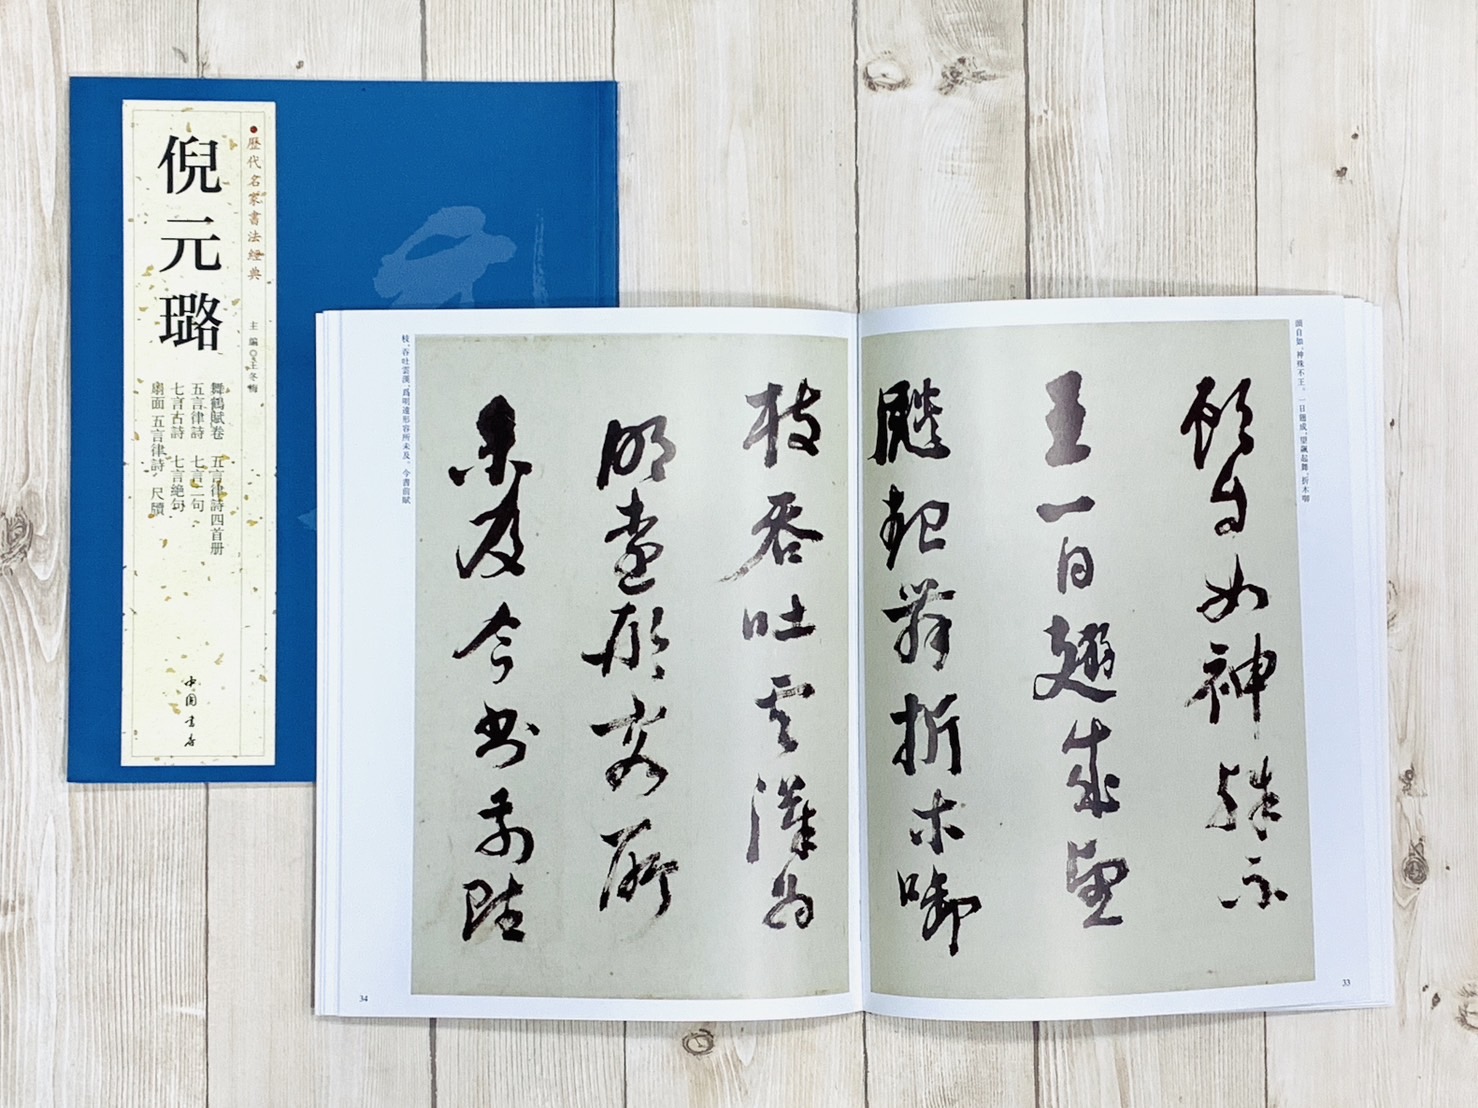 歷代名家書法經典
倪元璐
主編◎王冬梅
舞鶴賦卷 五言律詩四首册
五言律詩 七言二句
七言古詩 七言絶句
扇面 五言律詩 尺牘
中国书店
面自如、神殊不王。一日翅成、望飆起舞、折木啣
顧自如神殊不
王一日翅成望
飈起舞折木啣
33
枝吞吐雲漢為
明遠形容所
未及今書前賦
枝、吞吐雲漢、爲明遠形容所未及、今書前賦
34